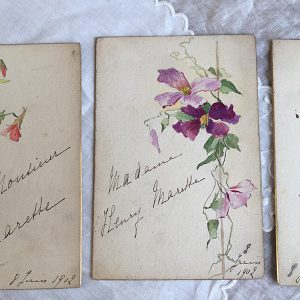 Monsieur
Marette
8 Juin 1902
Madame
Henry Marette
8
Juin
1902